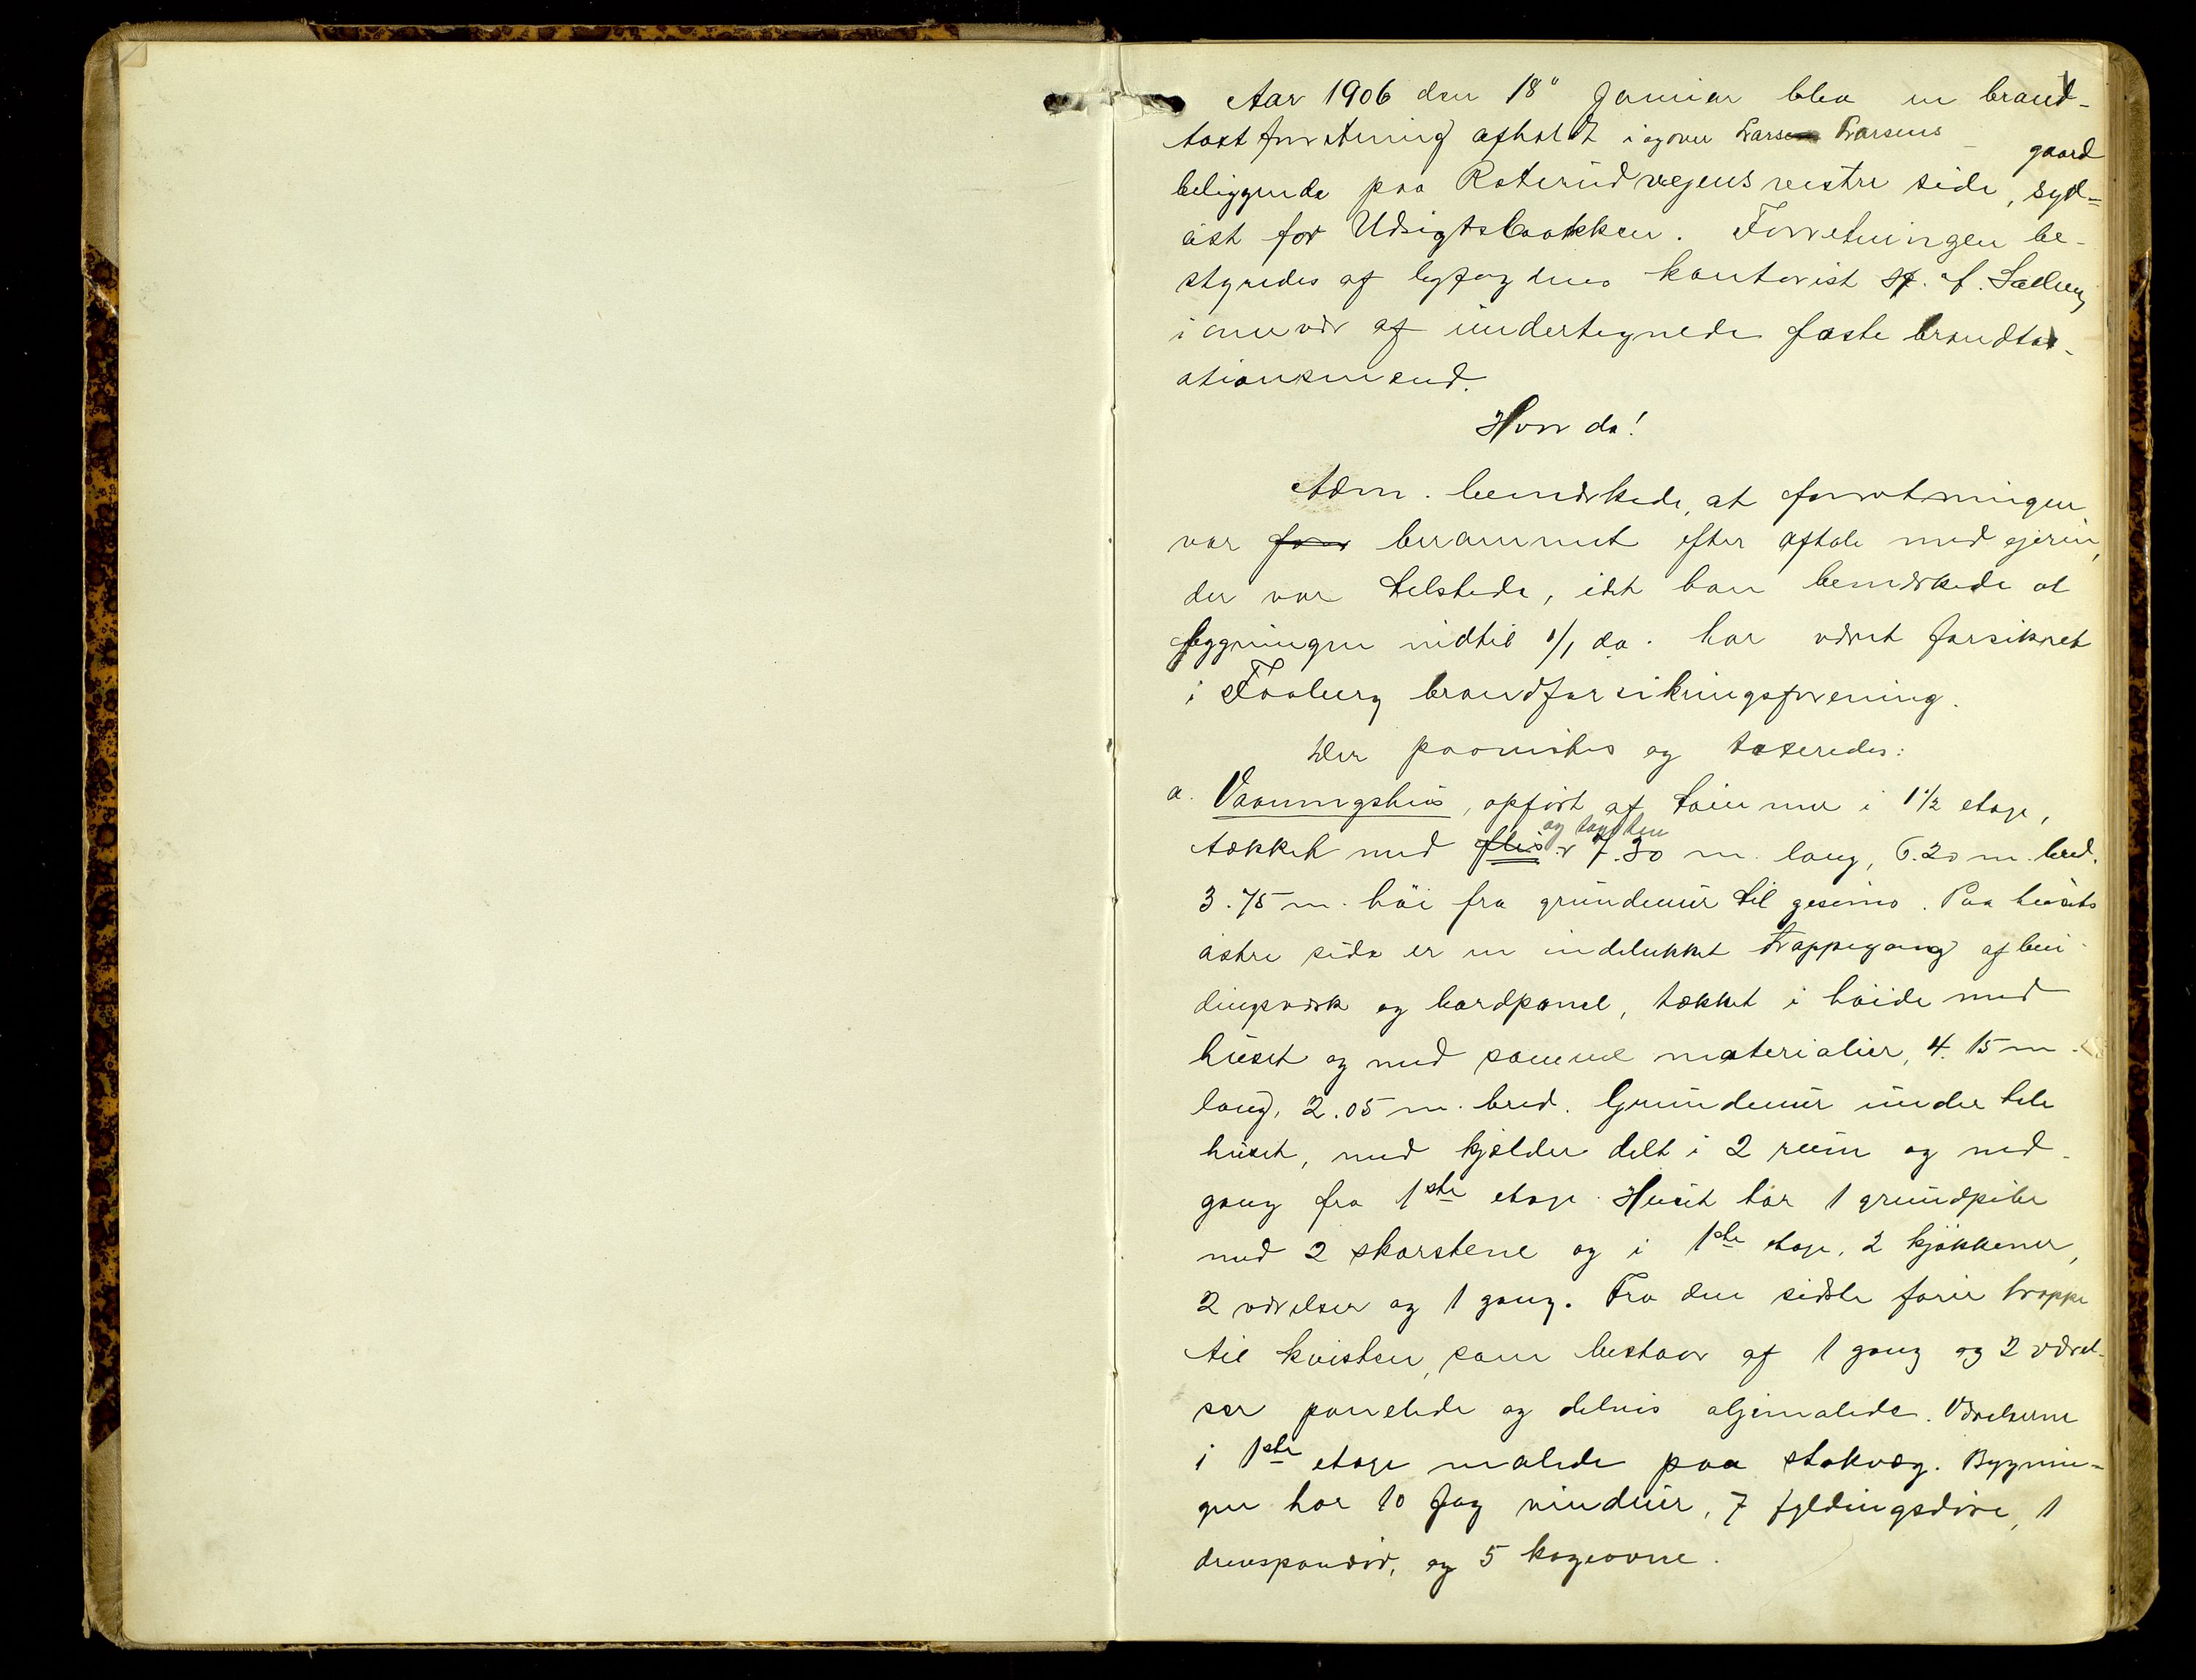 1
Aar 1906 den 18" Januar blev en brand-
taxtforretning afholdt i og over Lars Larsens gaard
beliggende paa Roterudveiens vestre side, syd-
øst for Udsigtsbakken. Forretningen be-
styredes af byfogdens kontorist
i nærvær af undertegnede faste brandtax-
ationsmænd.
Hvorda!
Adm. bemærkede, at forretningen
var berammet efter aftale med eieren,
der var tilstede, idet han bemærkede at
bygningen indtil 1/1 da. har været forsikret
i Faaberg brandforsikringsforening.
Der paavistes og taxeredes:
a. Vaaningshus, opført af tømmer i 1½ etage,
og tagsten
tækket med flis 7.30 m. lang, 6.20 m. bred.
3.75 m. høi fra grundmur til gesims. Paa husets
østre side er en indelukket trappegang af bin-
dingsværk og bordpanel, tækket i høide med
huset og med samme materialier, 4.15 m.
lang, 2.05 m. bred. Grundmur under hele
huset, med kjælder delt i 2 rum og ned-
gang fra 1ste etage. Huset har 1 grundpibe
med 2 skorstene og i 1ste etage, 2 kjøkkener,
2 værelser og 1 gang. Fra den sidste fører trappe
til kvisten, som bestaar af 1 gang og 2 værel-
ser panelede og delvis oljemalede. Værelserne
i 1ste etage malede paa stokvæg. Bygnin-
gen har 10 fag vinduer, 7 fyldingsdøre, 1
og 5 kogeovne.